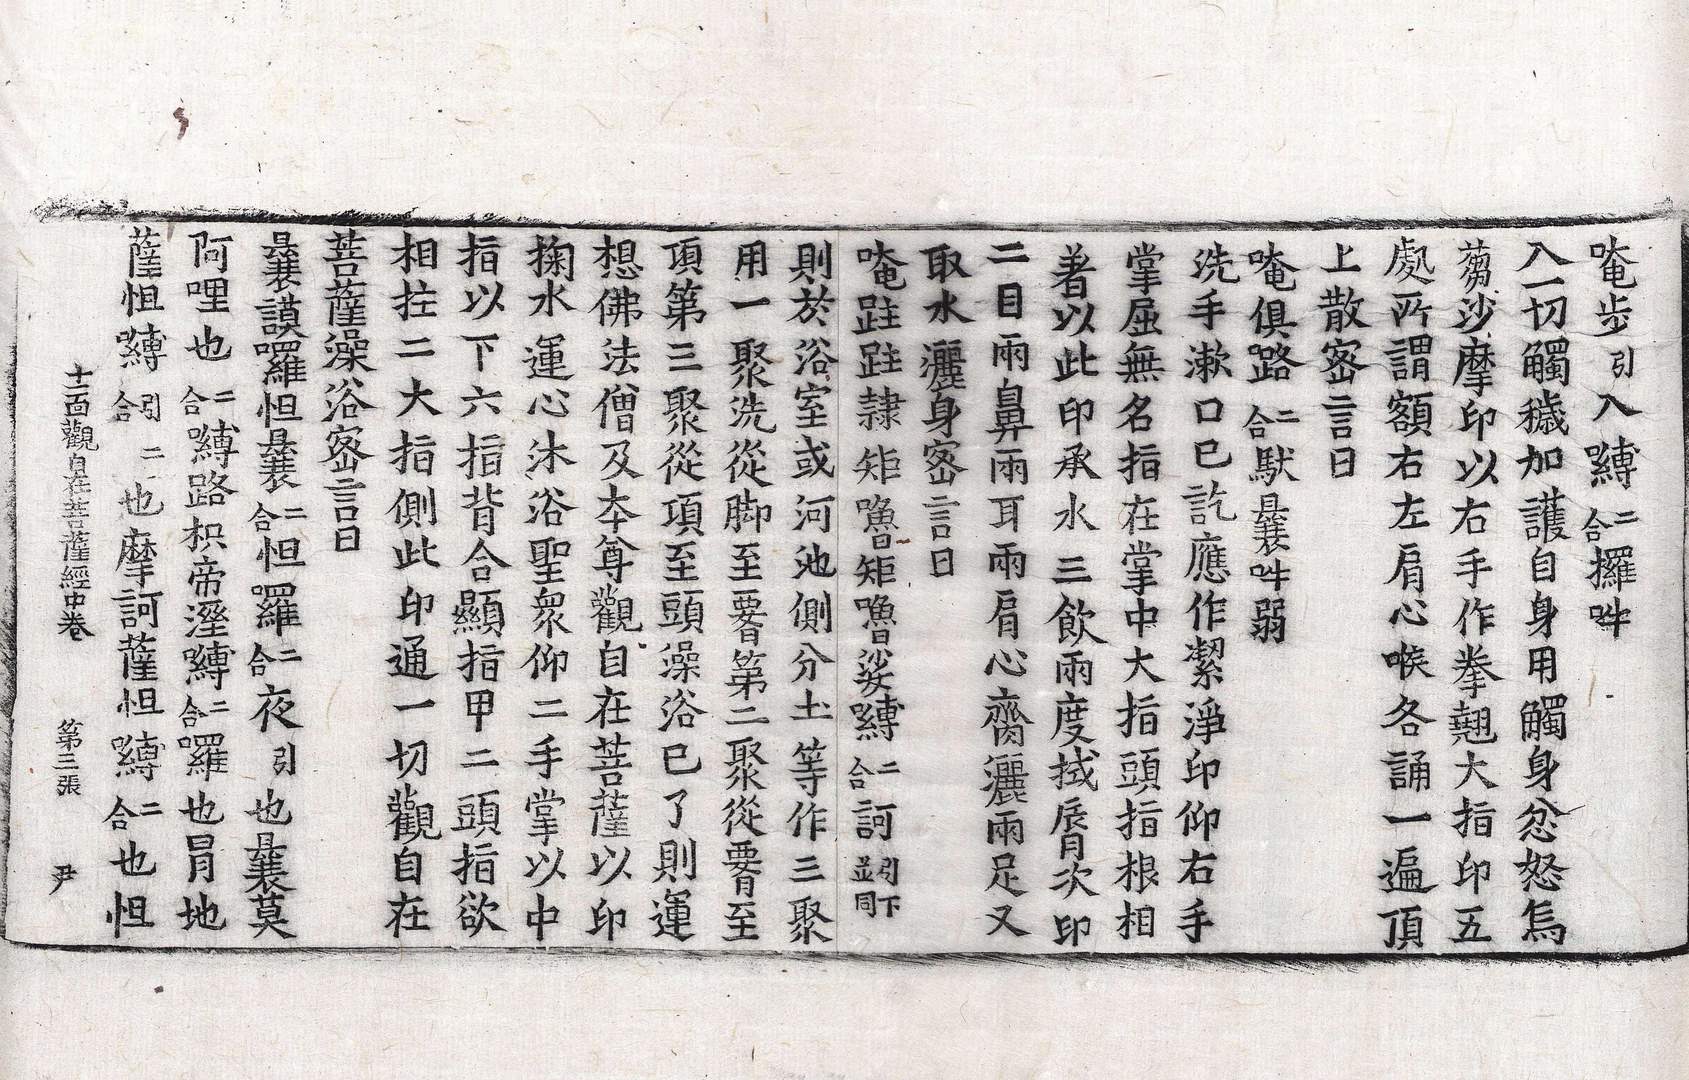 唵步引入嚩二合攞吽
入一切觸穢加護自身用觸身忿怒烏
蒭沙摩印以右手作拳翹大指印五
處所謂額右左肩心喉各誦一遍頂
上散密言曰
唵俱路二合馱曩吽弱
洗手漱口已訖應作潔淨印仰右手
掌屈無名指在掌中大指頭指根相
著以此印承水三飲兩度拭脣次印
二目兩鼻兩耳兩肩心齊灑兩足又
取水灑身密言曰
唵跓跓隷矩嚕矩嚕娑嚩二合訶引下並同
則於浴室或河池側分土等作三聚
用一聚洗從脚至𦝫第二聚從𦝫至
頂第三聚從項至頭澡浴已了則運
想佛法僧及夲尊觀自在菩薩以印
掬水運心沐浴聖衆仰二手掌以中
指以下六指背合顯指甲二頭指欲
相拄二大指側此印通一切觀自在
菩薩澡浴密言曰
曩謨囉怛曩二合怛囉二合夜引也曩莫
阿哩也二合嚩路枳帝溼嚩二合囉也冐地
薩怛嚩二合引也摩訶薩怛嚩二合也怛
十一面觀自在菩薩經中卷 第三張 尹